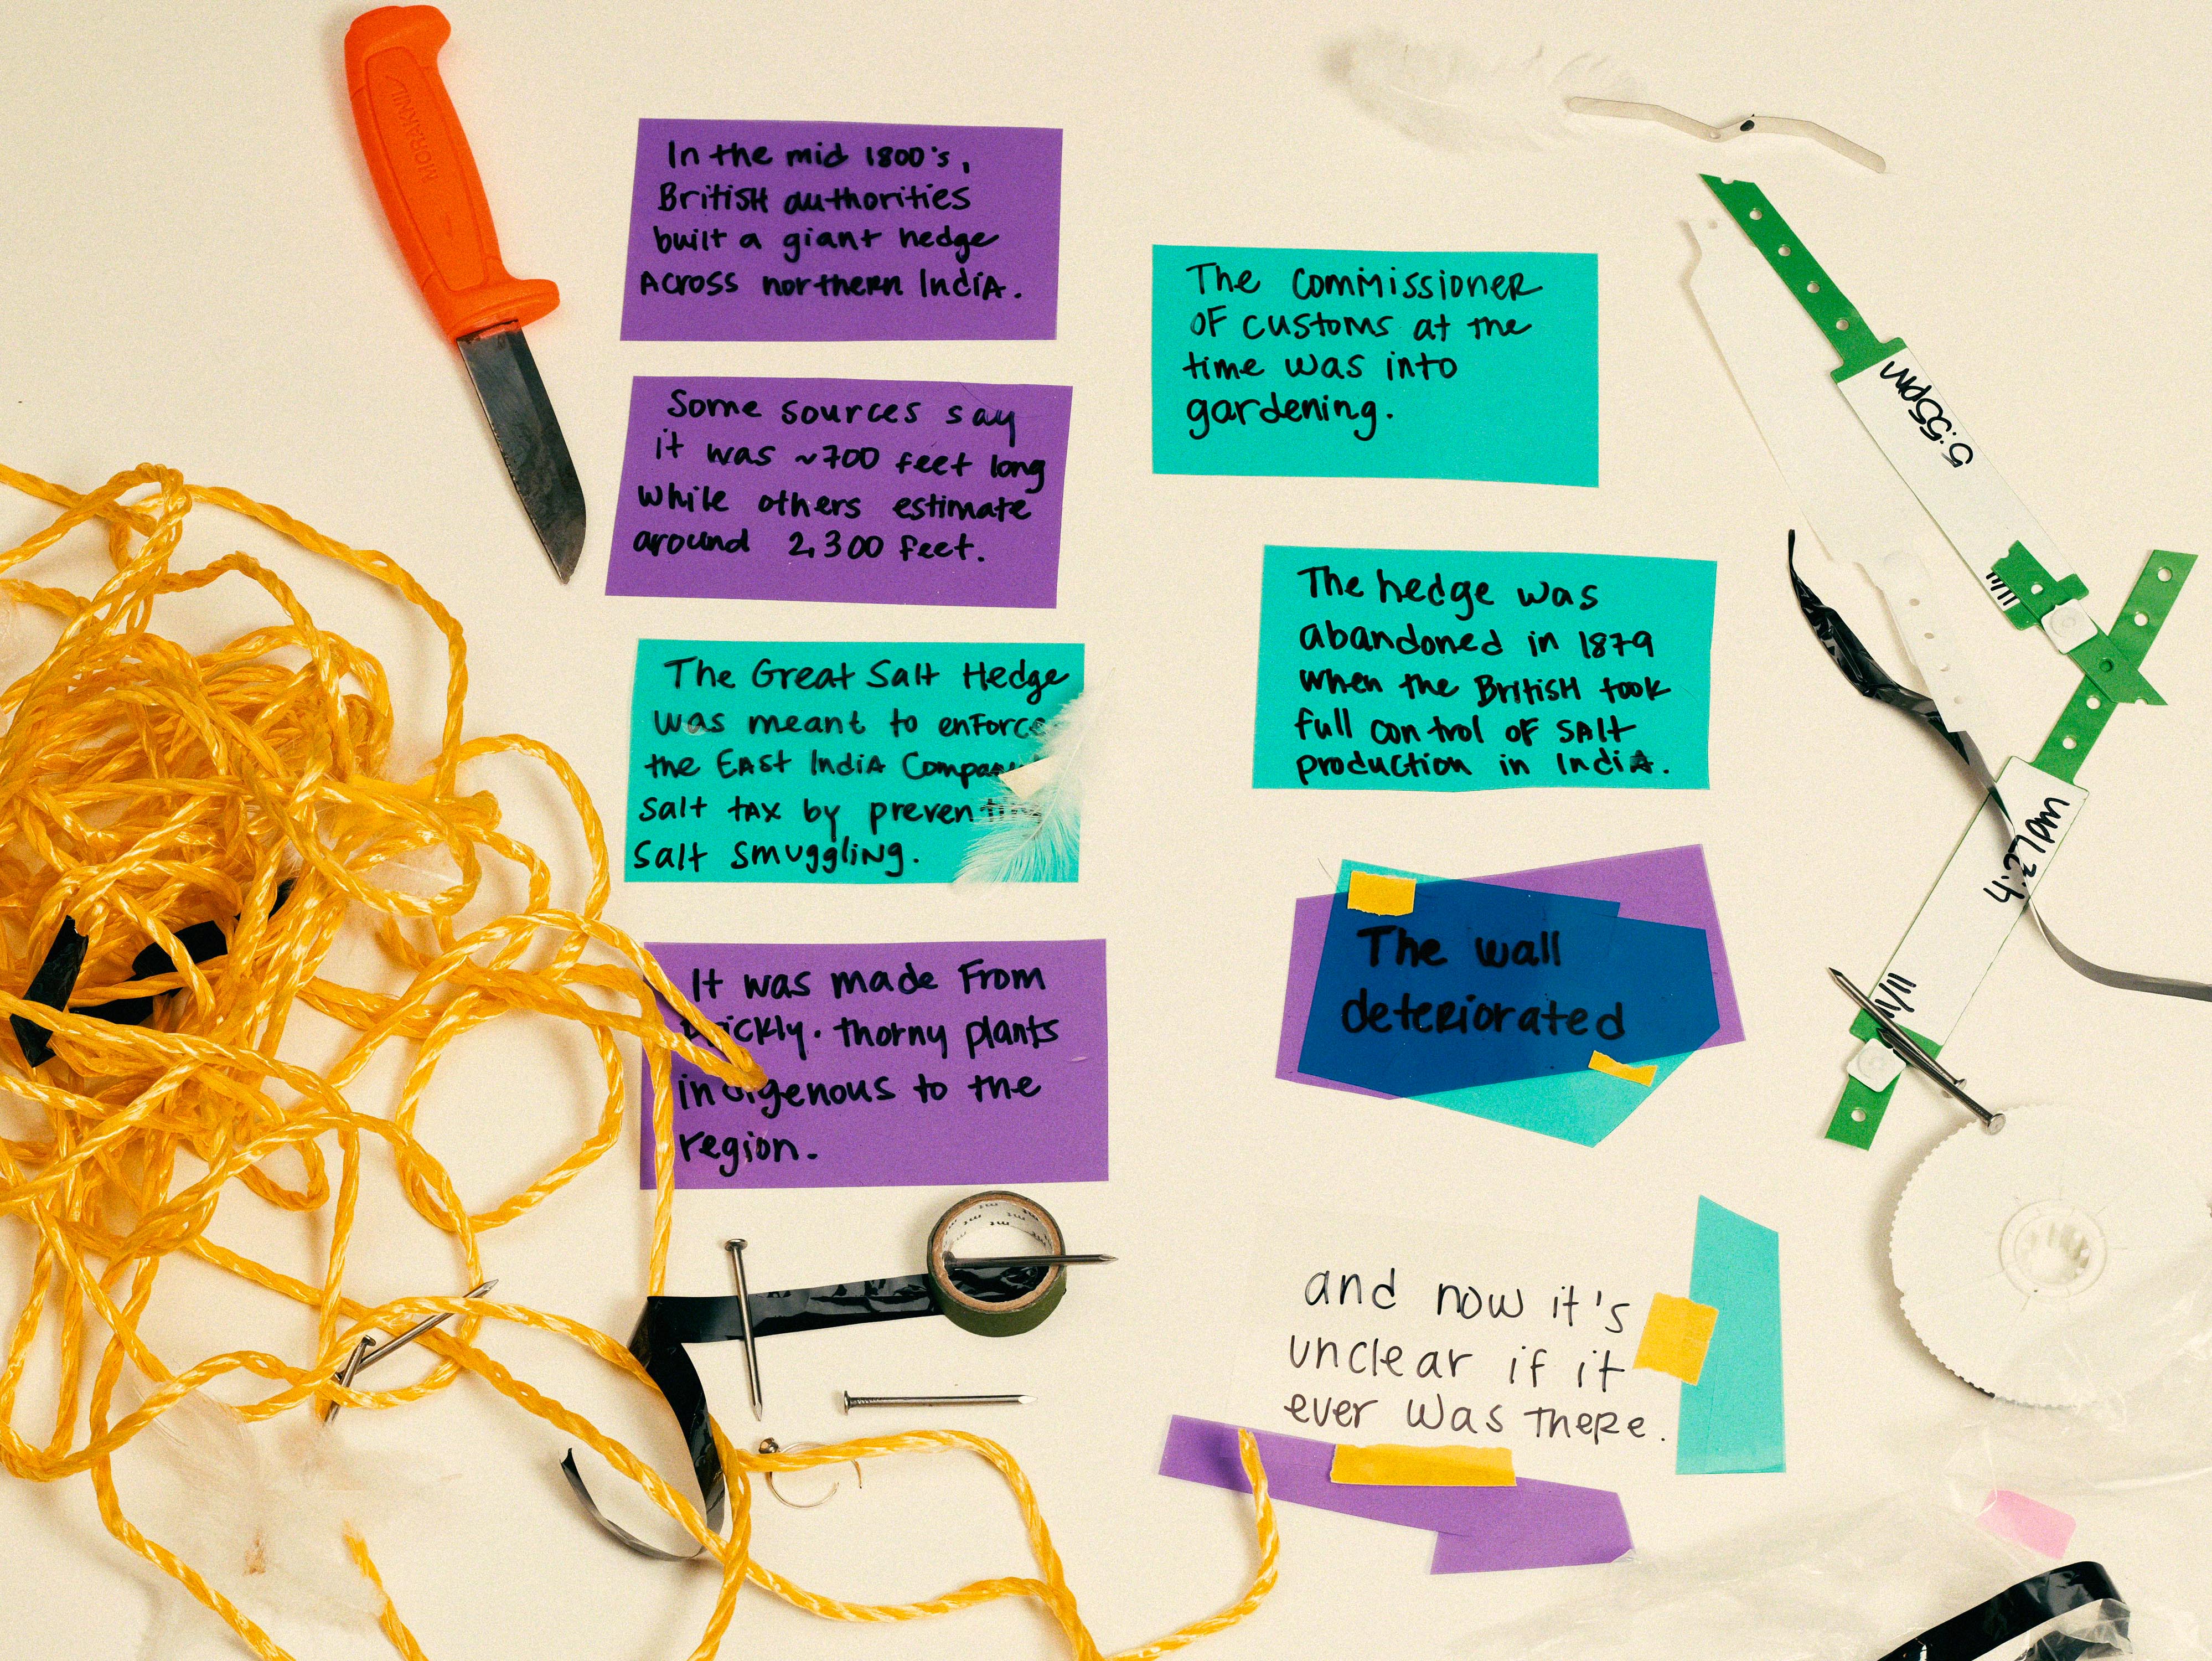 MORAKNIV
In the mid 1800's,
British authorities
built a giant hedge
across northern India.
Some sources say
it was ~700 feet long
while others estimate
around 2,300 feet.
The Great Salt Hedge
was meant to enforce
the East India Company
salt tax by preventing
salt smuggling.
It was made from
prickly. thorny plants
indigenous to the
region.
The commissioner
of customs at the
time was into
gardening.
The hedge was
abandoned in 1879
when the British took
full control of salt
production in India.
The wall
deteriorated
and now it's
unclear if it
ever was there.
5:55pm
4:27pm
mt mt mt